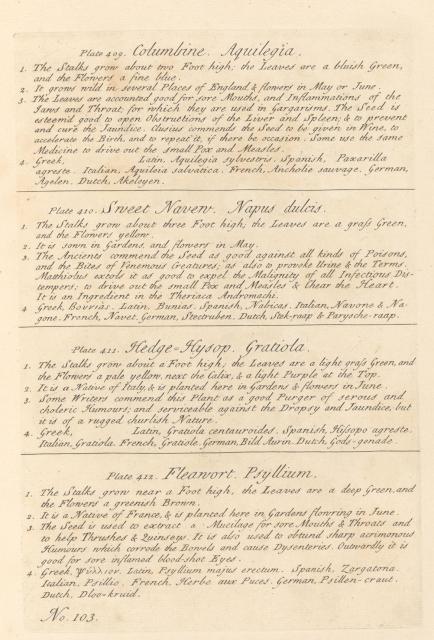 Plate 409. Columbine. Aquilegia.
1. The Stalks grow about two Foot high; the Leaves are a bluish Green,
and the Flowers a fine blue.
2. It grows wild in several Places of England & flowers in May or June.
3. The Leaves are accounted good for sore Mouths, and Inflammations of the
Jaws and Throat; for which they are used in Gargarisms. The Seed is
esteem'd good to open Obstructions of the Liver and Spleen; & to prevent
and cure the Jaundice. Clusius commends the Seed to be given in Wine, to
accelerate the Birth, and to repeat it, if there be occasion. Some use the same
Medicine to drive out the small Pox and Measles.
4. Greek, Latin, Aquilegia sylvestris. Spanish, Paxarilla
agreste. Italian, Aquiloia salvatica. French, Ancholie sauvage. German,
Agelen. Dutch, Akeloyen.
Plate 410. Sweet Navew. Napus dulcis.
1. The Stalks grow about three Foot high; the Leaves are a grass Green,
and the Flowers yellow.
2. It is sown in Gardens, and flowers in May.
3. The Ancients commend the Seed as good against all kinds of Poisons,
and the Bites of Venemous Creatures; as also to provoke Urine & the Terms.
Matthiolus extols it as good to expel the Malignity of all Infectious Dis-
tempers; to drive out the small Pox and Measles & chear the Heart.
It is an Ingredient in the Theriaca Andromachi.
4. Greek, Βουνιὰς. Latin, Bunias. Spanish, Nabicas. Italian, Navone & Na-
gone. French, Navet. German, Steckruben. Dutch, Stek-raap & Parysche-raap.
Plate 411. Hedge=Hysop. Gratiola.
1. The Stalks grow about a Foot high; the Leaves are a light grass Green, and
the Flowers a pale yellow next the Calix, & a light Purple at the Top.
2. It is a Native of Italy, & is planted here in Gardens & flowers in June.
3. Some Writers commend this Plant as a good Purger of serous and
choleric Humours; and serviceable against the Dropsy and Jaundice, but
it is of a rugged churlish Nature.
4. Greek, Latin, Gratia centauroides. Spanish, Hissopo agreste.
Italian, Gratiola. French, Gratiole. German, Bild Aurin. Dutch, Gods-genade.
Plate 412. Fleawort. Psyllium.
1. The Stalks grow near a Foot high, the Leaves are a deep Green, and
the Flowers a greenish Brown.
2. It is a Native of France, & is planted here in Gardens flowring in June.
3. The Seed is used to extract a Mucilage for sore Mouths & Throats and
to help Thrushes & Quinseys. It is also used to obtund sharp acrimonous
Humours which corrode the Bowels and cause Dysenteries. Outwardly it is
good for sore inflamed blood-shot Eyes.
4. Greek, Ψύλλιον. Latin, Psyllium majus erectum. Spanish, Zargatona.
Italian, Psillio. French, Herbe aux Puces. German, Psillen-craut.
Dutch, Dloo-kruid.
No. 103.